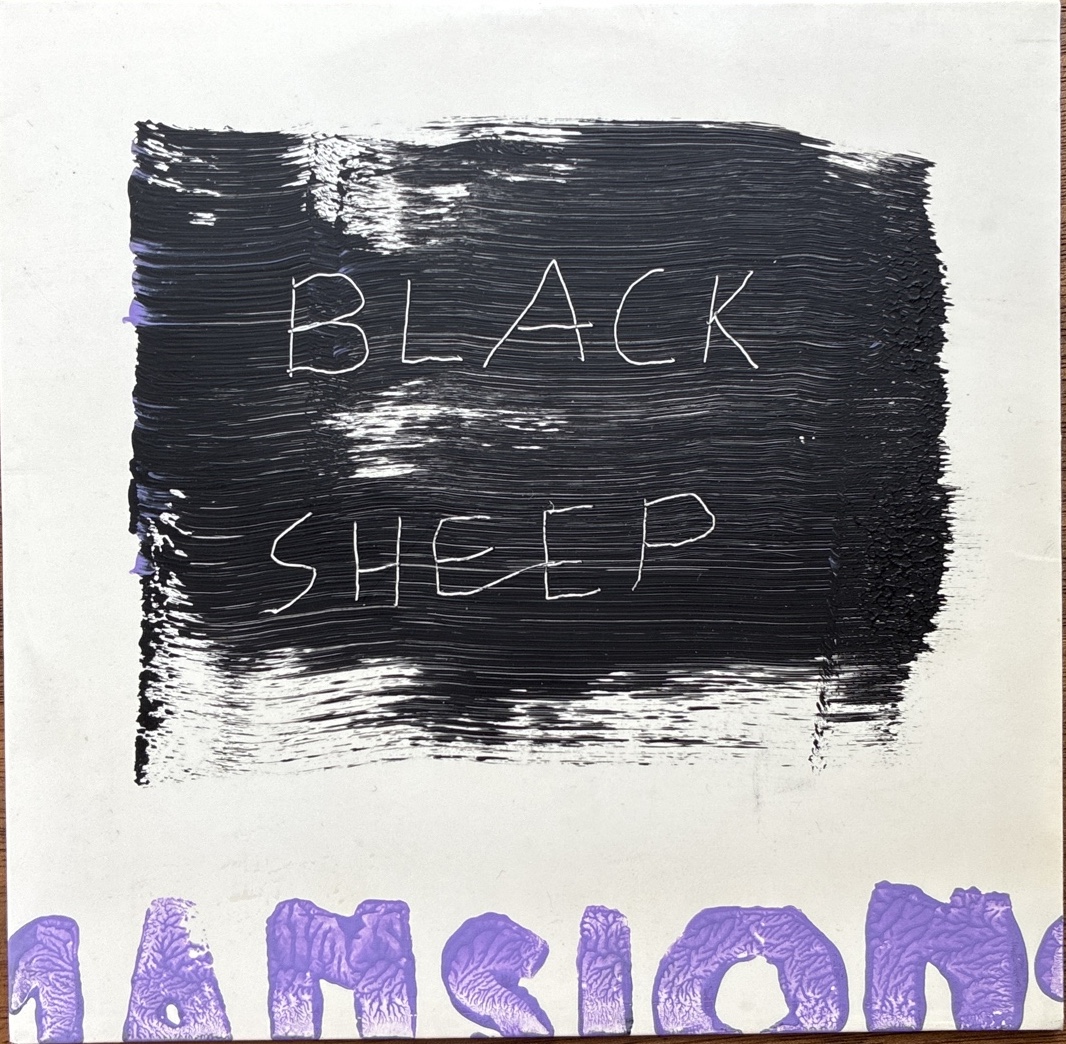 BLACK
SHEEP
MANSIONS